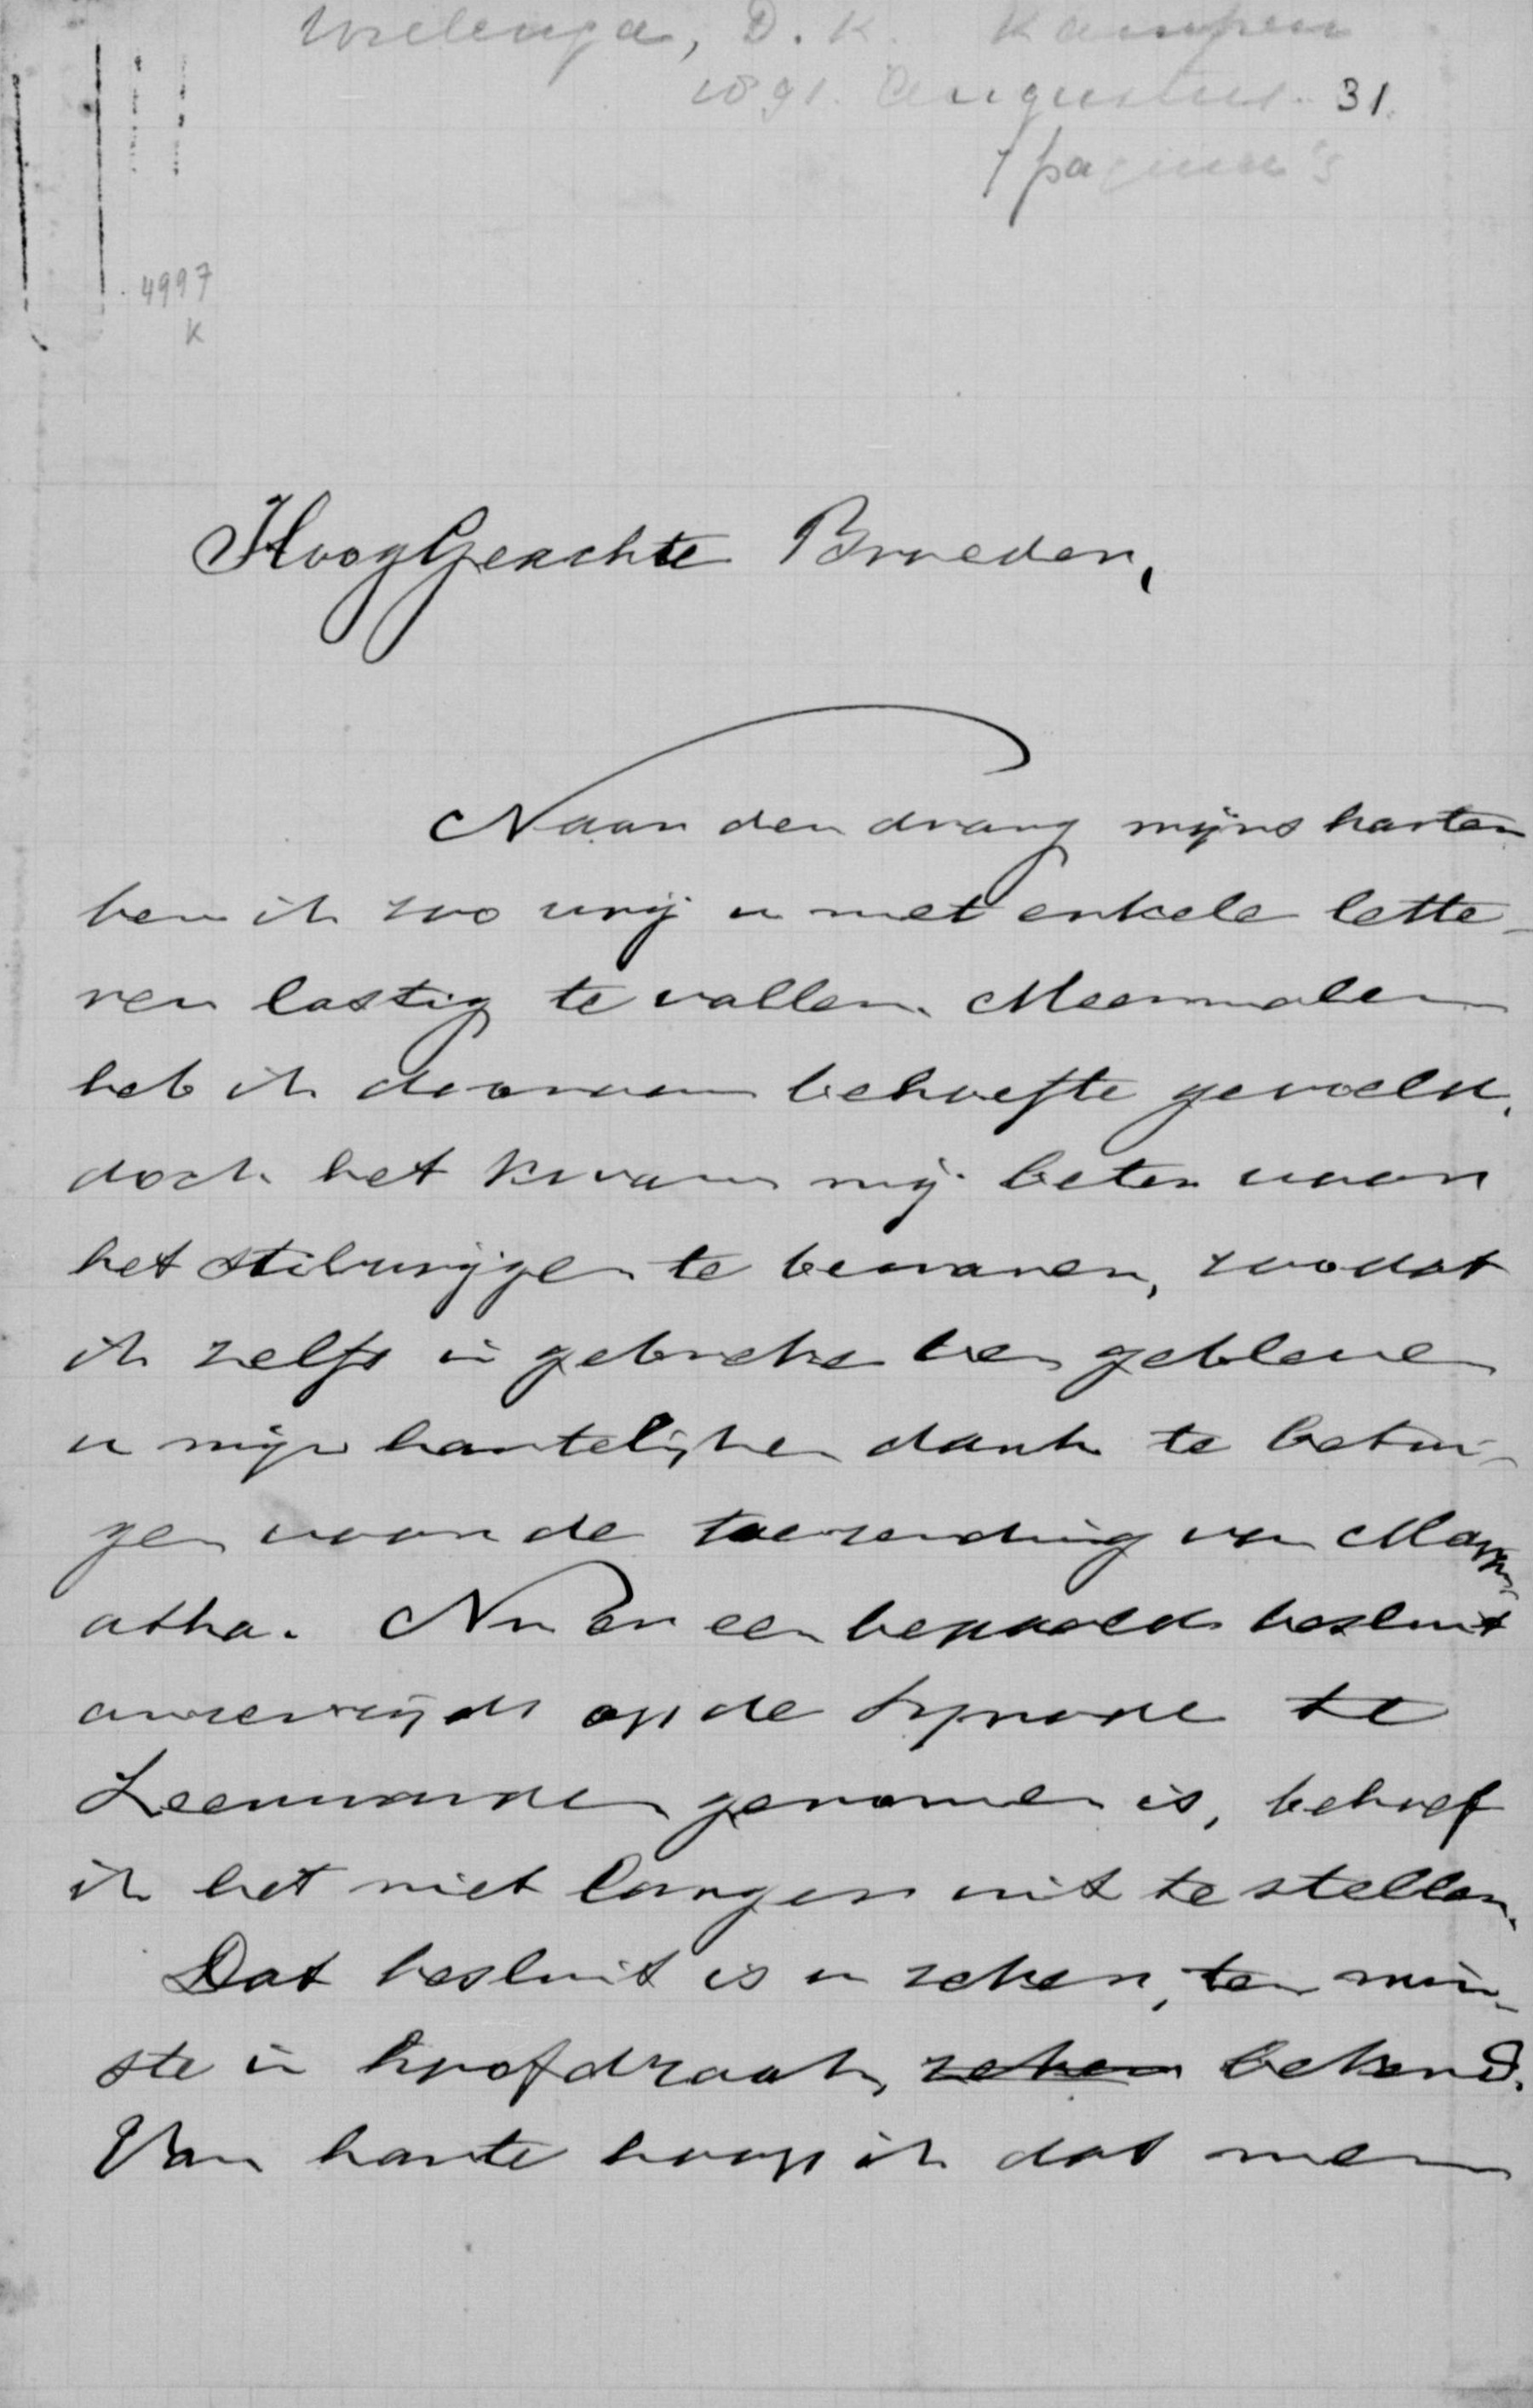 Wielenga, D. K. Kampen
1891. Augustus. 31.
7 pagina's
4997
K
HoogGeachte Broeder,
Naar den drang mijns harten
ben ik zoo vrij u met enkele lette-
ren lastig te vallen. Meermalen
heb ik daaraan behoefte gevoeld,
doch het kwam mij beter voor
het stilzwijgen te bewaren, zoodat
ik zelfs in gebreke ben gebleven
u mijn hartelijken dank te betui-
gen voor de toezending van Maran-
atha. Nu er een bepaald besluit
onzerzijds op de Synode te
Leeuwarden genomen is, behoef
ik het niet langer uit te stellen.
Dat besluit is u zeker, ten min-
ste in hoofdzaak, zeker bekend.
Van harte hoop ik dat men